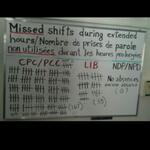 Missed shifts during extended
hours/Nombre de prises de parole
non utilisées durant les heures prolongées
CPC/PCC
LIB
NDP/NPD
No absences
aucune absence
(0)